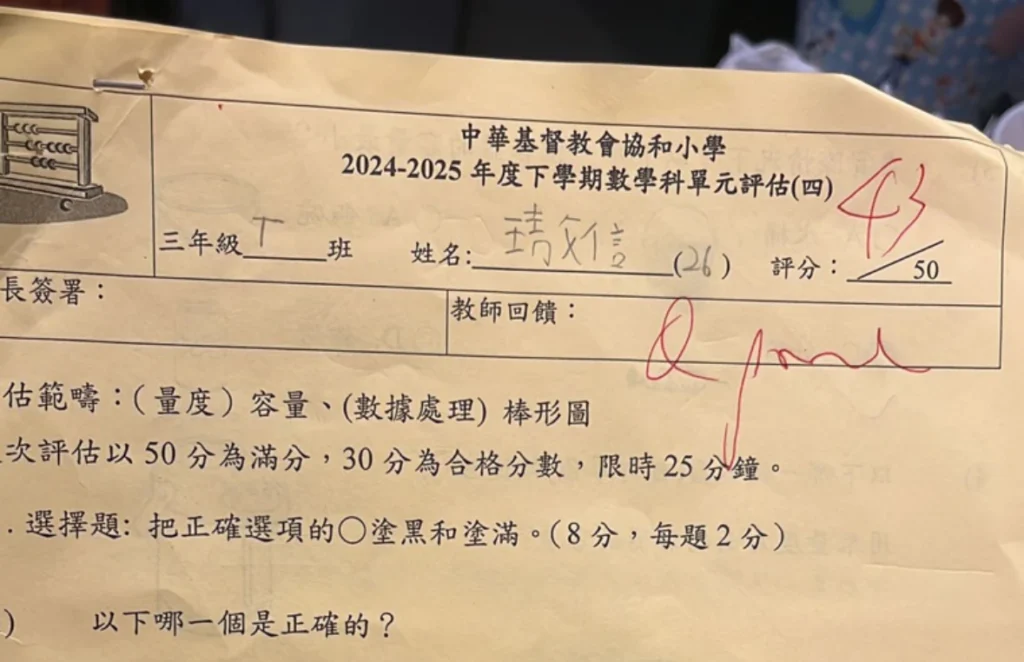 中華基督教會協和小學
2024-2025 年度下學期數學科單元評估(四)
三年級 T 班 姓名: (26) 評分: 43/50
長簽署:
教師回饋:
估範疇:(量度)容量、(數據處理) 棒形圖
次評估以 50 分為滿分,30 分為合格分數,限時 25 分鐘。
. 選擇題: 把正確選項的○塗黑和塗滿。(8 分,每題 2 分)
) 以下哪一個是正確的?